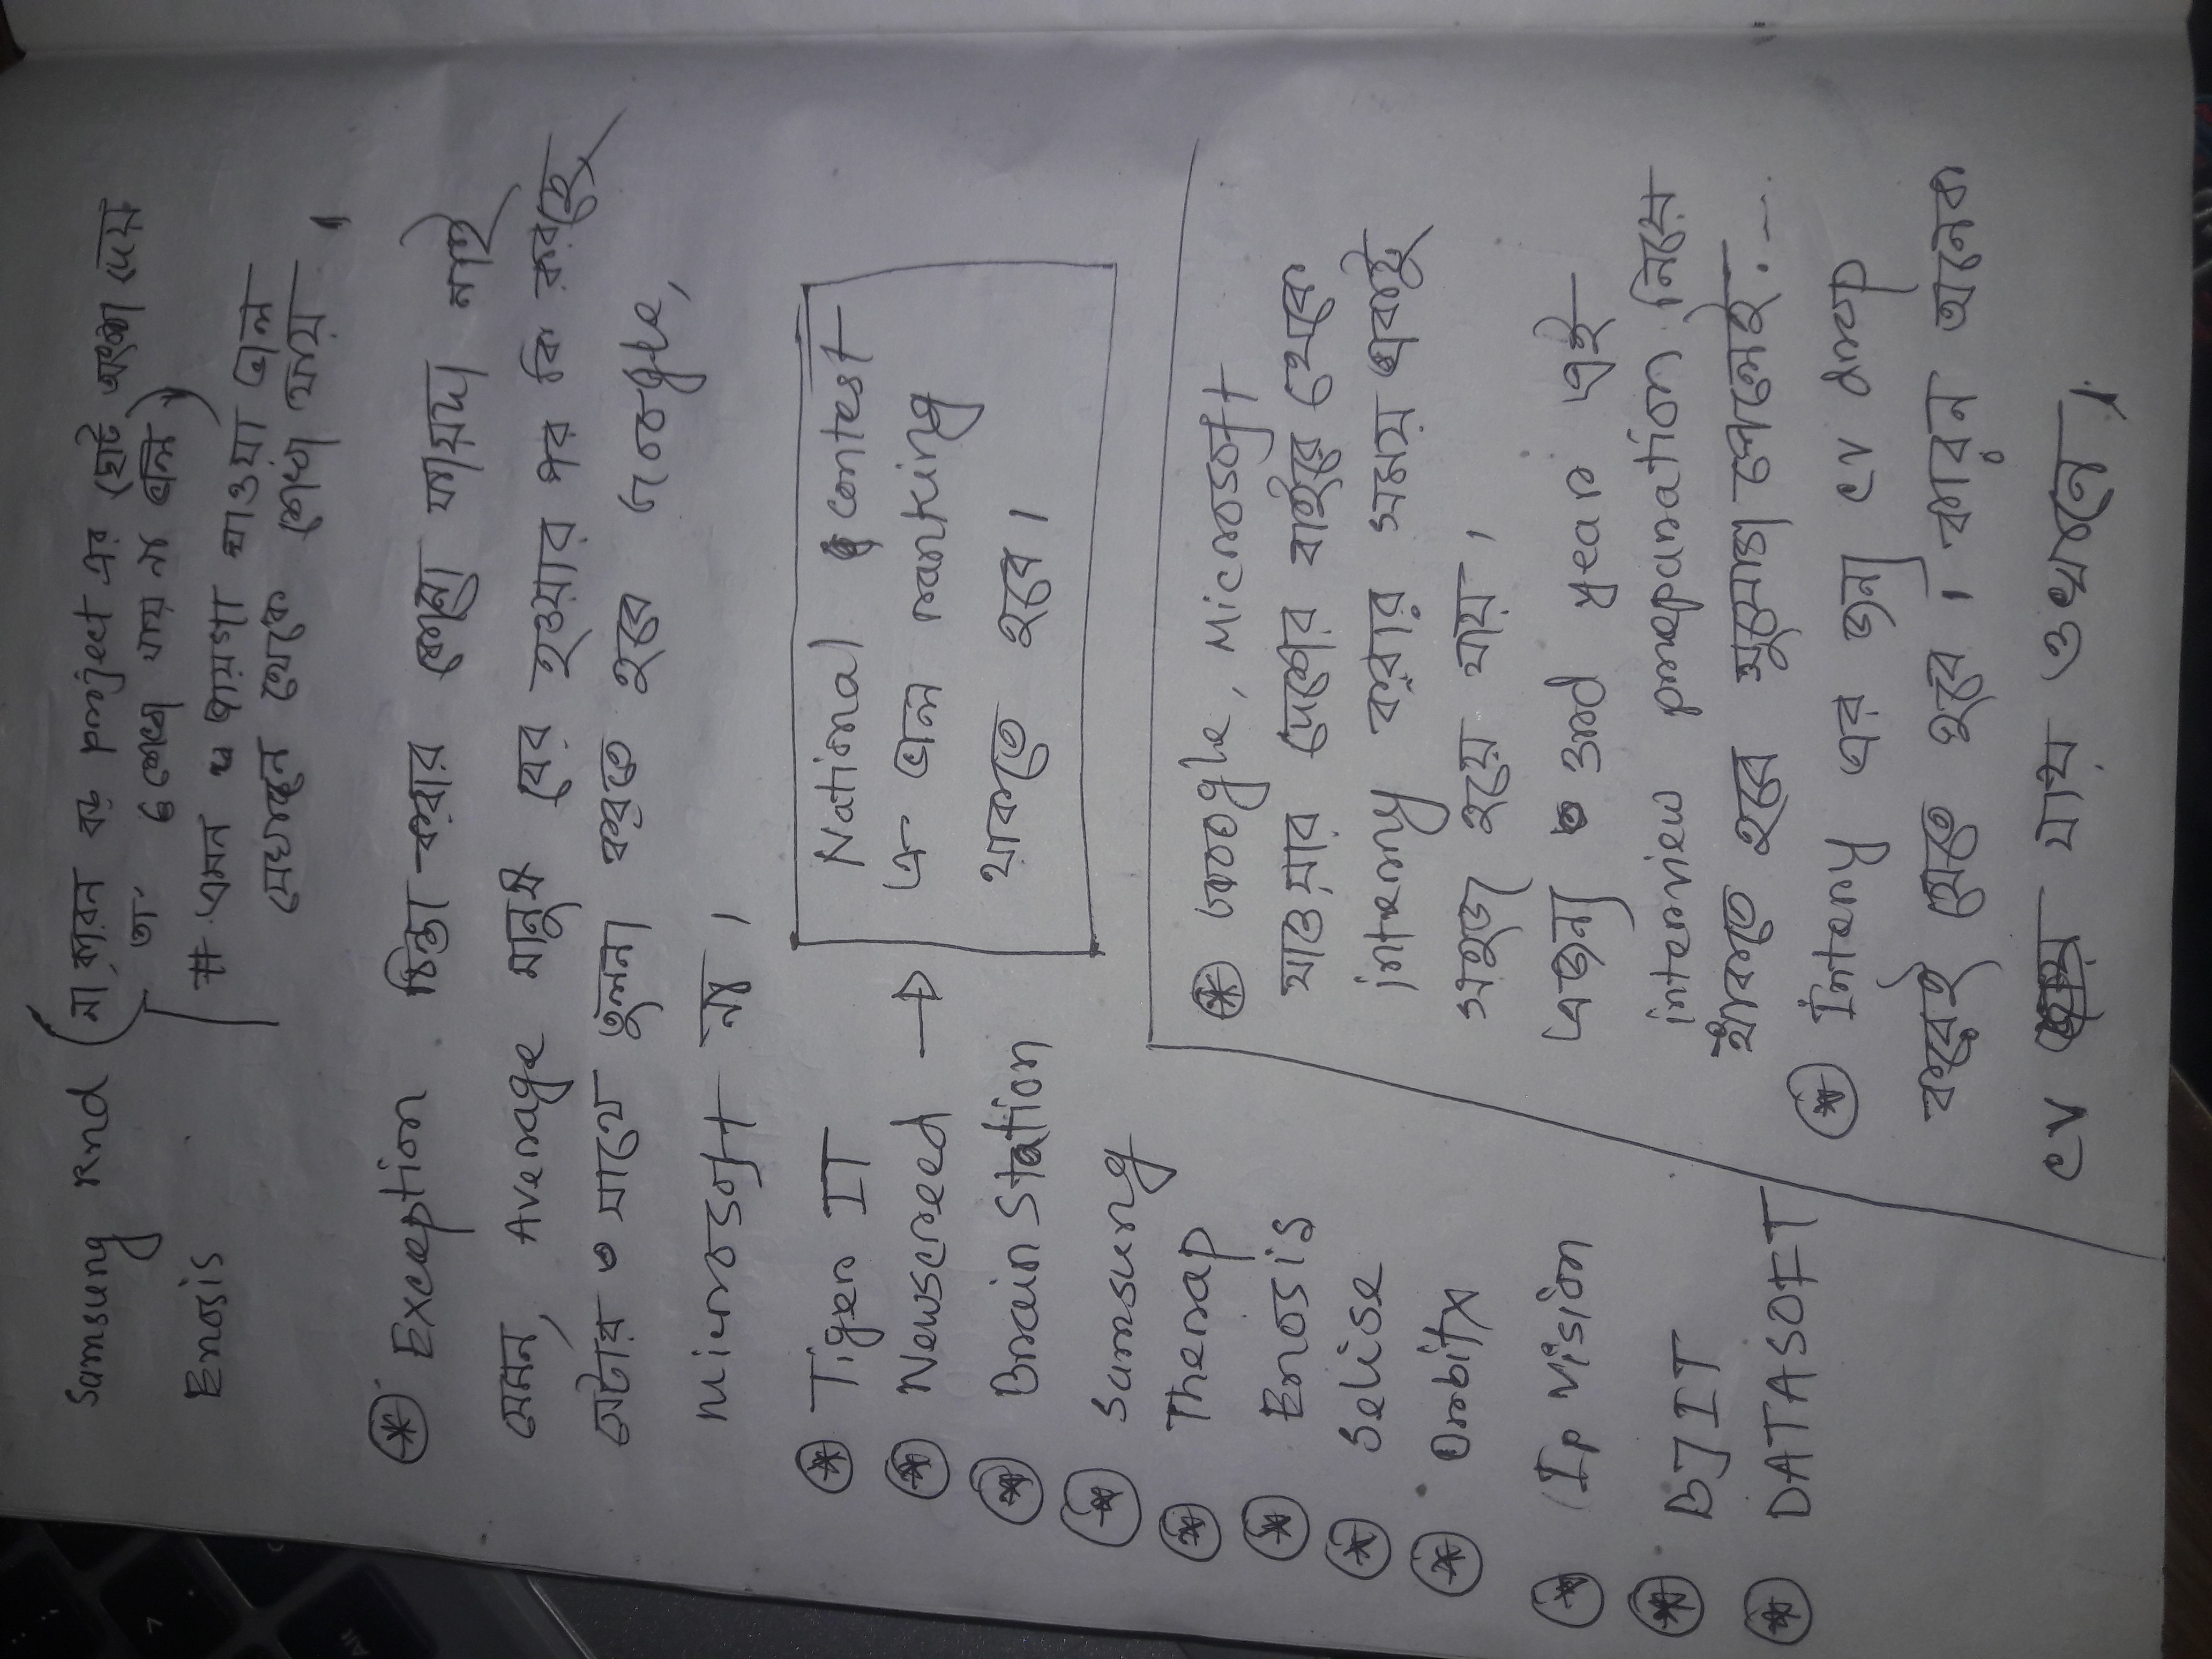 Samsung Rnd (না কারন বড় project এর ছোট অংশ দেয়
তা শেখা যায় না ভাল)
Enosis
# এমন জায়গা যাওয়া ভাল
যেখানে থেকে শেখা যায় ।
⊛ Exception চিন্তা করার কোনো ফায়দা নাই
যেমন, Average মানুষ বের হওয়ার পর কি করছে
সেটার সাথে তুলনা করতে হবে Google,
Microsoft না ।
⊛ Tiger IT
⊛ Newscreed →
⊛ Brain Station
⊛ Samsung
⊛ Therap
⊛ Enosis
⊛ Selise
⊛ Orbitx
⊛ Ip Vision
⊛ BJIT
⊛ DATASOFT
National contest
এ ভাল ranking
থাকতে হবে ।
⊛ Google, Microsoft
যাওয়ার দেশের বাইরে থেকে
interny করার সময় একটু
সহজ হয়ে যায় ।
এজন্য 3rd year এই
interview preparation নিয়ে
থাকতে হবে সুযোগ পেলেই....
⊛ Interny এর জন্য cv drop
করেই যেতে হবে । কারন অনেক
cv যায় ওখানে ।